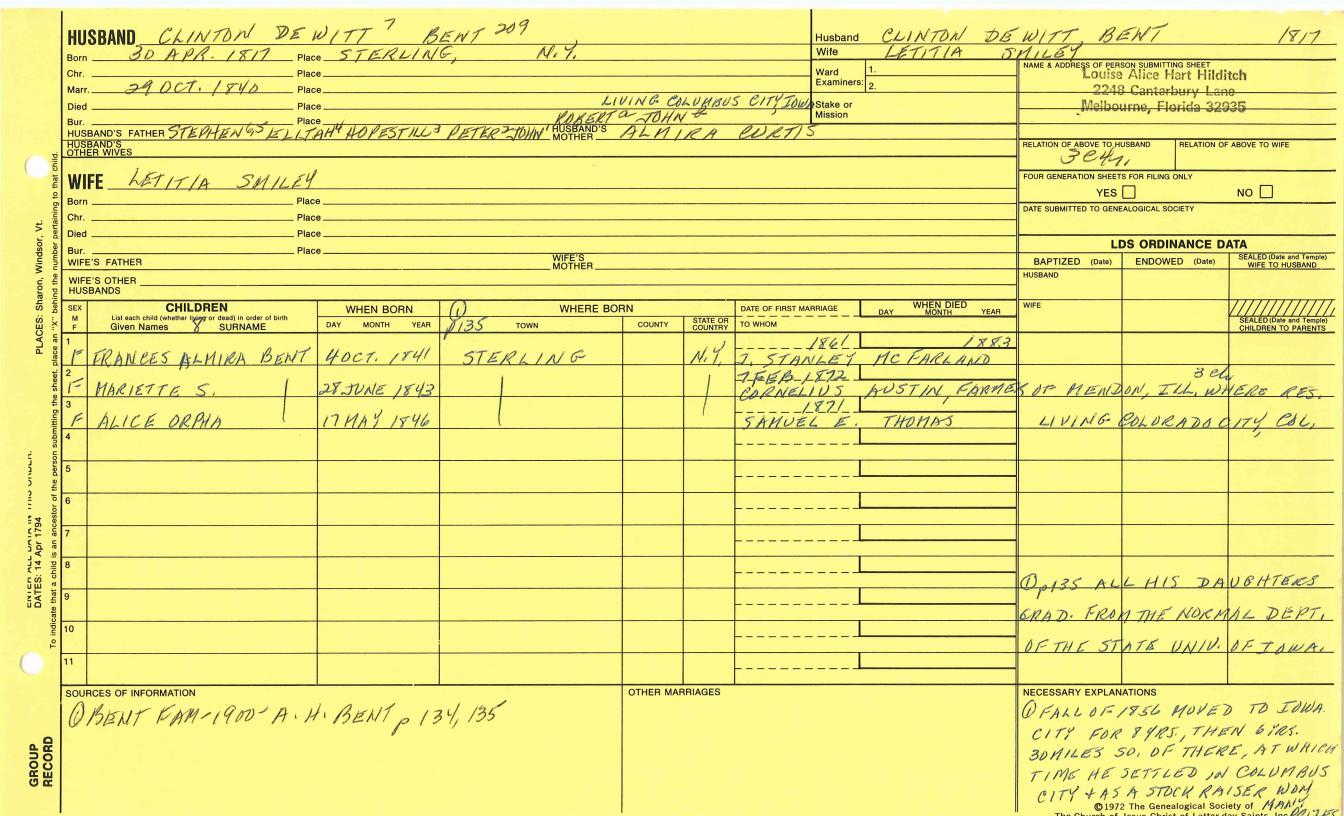 HUSBAND CLINTON DE WITT 7 BENT 209
Husband CLINTON DE WITT BENT 1817
Wife LETITIA SMILEY
Born 30 APR. 1817 Place STERLING, N.Y.
Chr. Place
Marr. 29 OCT. 1840 Place
Died Place LIVING COLUMBUS CITY, IOWA
Bur. Place
ROBERT JOHN
HUSBAND'S FATHER STEPHEN ELIJAH 4 HOPESTILL 3 PETER 2 JOHN 1 HUSBAND'S MOTHER ALMIRA CURTIS
HUSBAND'S OTHER WIVES
Ward Examiners: 1.
2.
Stake or Mission
NAME & ADDRESS OF PERSON SUBMITTING SHEET
Louise Alice Hart Hilditch
2248 Canterbury Lane
Melbourne, Florida 32935
RELATION OF ABOVE TO HUSBAND RELATION OF ABOVE TO WIFE
FOUR GENERATION SHEETS FOR FILING ONLY
YES NO
DATE SUBMITTED TO GENEALOGICAL SOCIETY
WIFE LETITIA SMILEY
Born Place
Chr. Place
Died Place
Bur. Place
WIFE'S FATHER WIFE'S MOTHER
WIFE'S OTHER HUSBANDS
LDS ORDINANCE DATA
BAPTIZED (Date) ENDOWED (Date) SEALED (Date and Temple) WIFE TO HUSBAND
HUSBAND
WIFE
SEALED (Date and Temple) CHILDREN TO PARENTS
SEX M F
CHILDREN
List each child (whether living or dead) in order of birth
Given Names 8 SURNAME
WHEN BORN
DAY MONTH YEAR
① p135
WHERE BORN
TOWN COUNTY STATE OR COUNTRY
DATE OF FIRST MARRIAGE
TO WHOM
WHEN DIED
DAY MONTH YEAR
1 1861 1883
F FRANCES ALMIRA BENT 4 OCT. 1841 STERLING N.Y. J. STANLEY MCFARLAND
2 7 FEB 1872 3 ch
F MARIETTE S. 28 JUNE 1843 CORNELIUS AUSTIN, FARMER OF MENDON, ILL. WHERE RES.
3 1871
F ALICE ORPHA 17 MAY 1846 SAMUEL E. THOMAS LIVING COLORADO CITY, COL.
4
5
6
7
8
9
10
11
① p135 ALL HIS DAUGHTERS
GRAD. FROM THE NORMAL DEPT.
OF THE STATE UNIV. OF IOWA.
SOURCES OF INFORMATION
① BENT FAM-1900- A. H. BENT p 134, 135
OTHER MARRIAGES
NECESSARY EXPLANATIONS
① FALL OF 1856 MOVED TO IOWA
CITY FOR 8 YRS, THEN 6 YRS.
30 MILES SO. OF THERE, AT WHICH
TIME HE SETTLED IN COLUMBUS
CITY + AS A STOCK RAISER WON
MANY
PRIZES
©1972 The Genealogical Society of
The Church of Jesus Christ of Latter-day Saints, Inc.
PLACES: Sharon, Windsor, Vt.
ENTER ALL DATA IN THIS ORDER:
DATES: 14 Apr 1794
To indicate that a child is an ancestor of the person submitting the sheet, place an "X" behind the number pertaining to that child.
GROUP RECORD